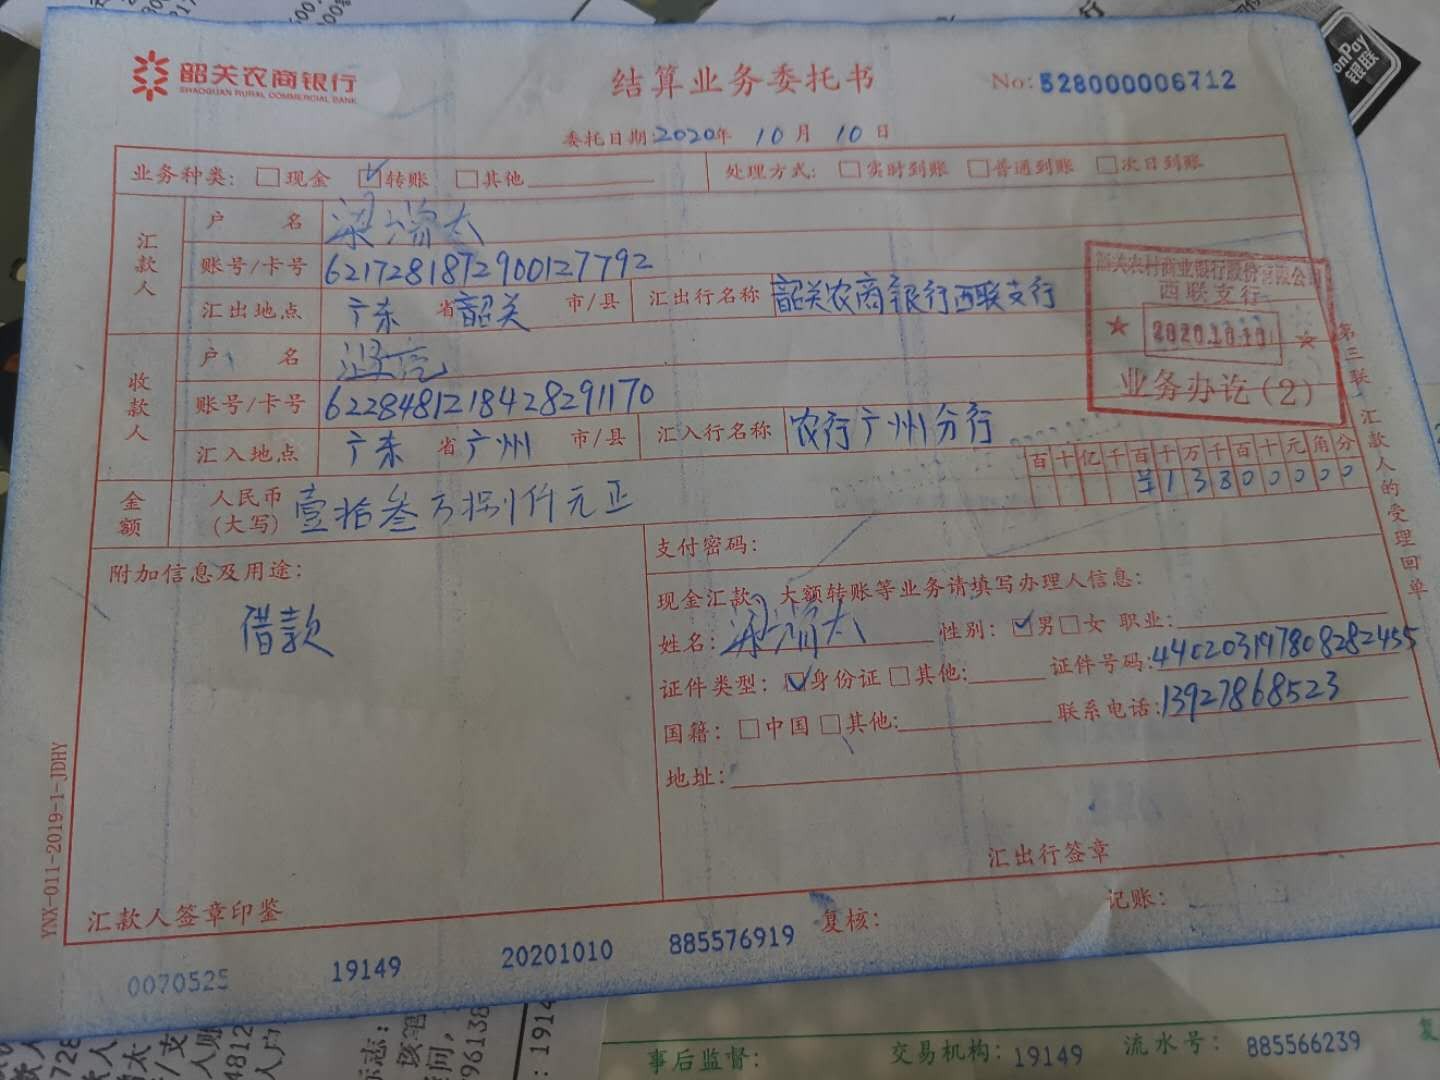 韶关农商银行
SHAOGUAN RURAL COMMERCIAL BANK
结算业务委托书
No:528000006712
委托日期:2020年 10月 10日
业务种类: 现金 转账 其他
处理方式: 实时到账 普通到账 次日到账
汇款人
户名
账号/卡号 6217281872900127792
汇出地点 广东 省 韶关 市/县 汇出行名称 韶关农商银行西联支行
收款人
户名
账号/卡号 6228481218428291170
汇入地点 广东 省 广州 市/县 汇入行名称 农行广州分行
韶关农村商业银行股份有限公司
西联支行
2020.10.10
业务办讫(2)
第三联 汇款人的受理回单
金额 人民币(大写) 壹拾叁万捌仟元正
百十亿千百十万千百十元角分
¥13800000
附加信息及用途:
借款
支付密码:
现金汇款、大额转账等业务请填写办理人信息:
姓名: 性别: 男 女 职业:
证件类型: 身份证 其他: 证件号码:440203197808282455
国籍: 中国 其他: 联系电话:13927868523
地址:
汇出行签章
汇款人签章印鉴
复核:
记账:
YNX-011-2019-1-JDHY
0070525 19149 20201010 885576919
事后监督: 交易机构: 19149 流水号: 885566239